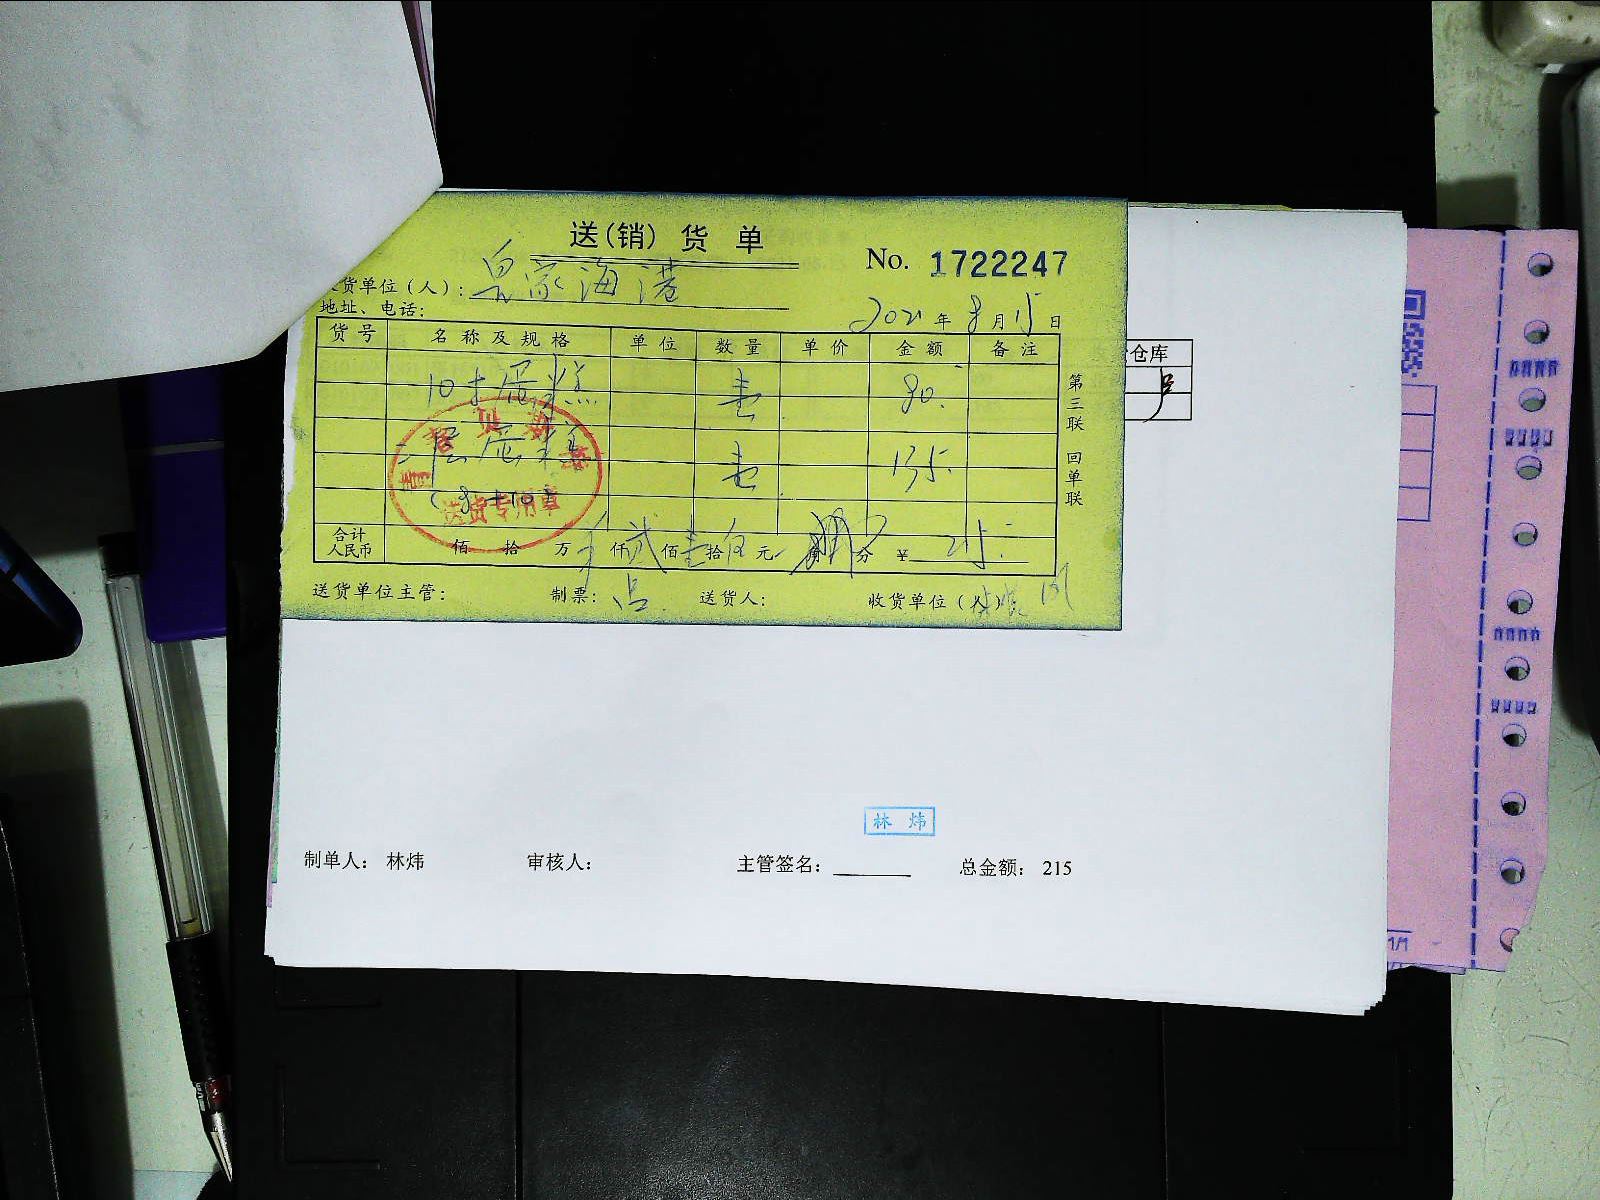 送(销)货单
No. 1722247
货单位(人): 皇家海港
地址、电话:
2021年8月15日
货号 名称及规格 单位 数量 单价 金额 备注
10寸蛋糕 壹 80.
二层蛋糕 壹 135.
(8+10)
送货专用章
合计人民币 佰 拾 万 仟贰佰壹拾伍元 角 分 ¥ 215.
第三联 回单联
送货单位主管: 制票: 送货人: 收货单位(人)
仓库
林炜
制单人: 林炜 审核人: 主管签名: 总金额: 215
1/1